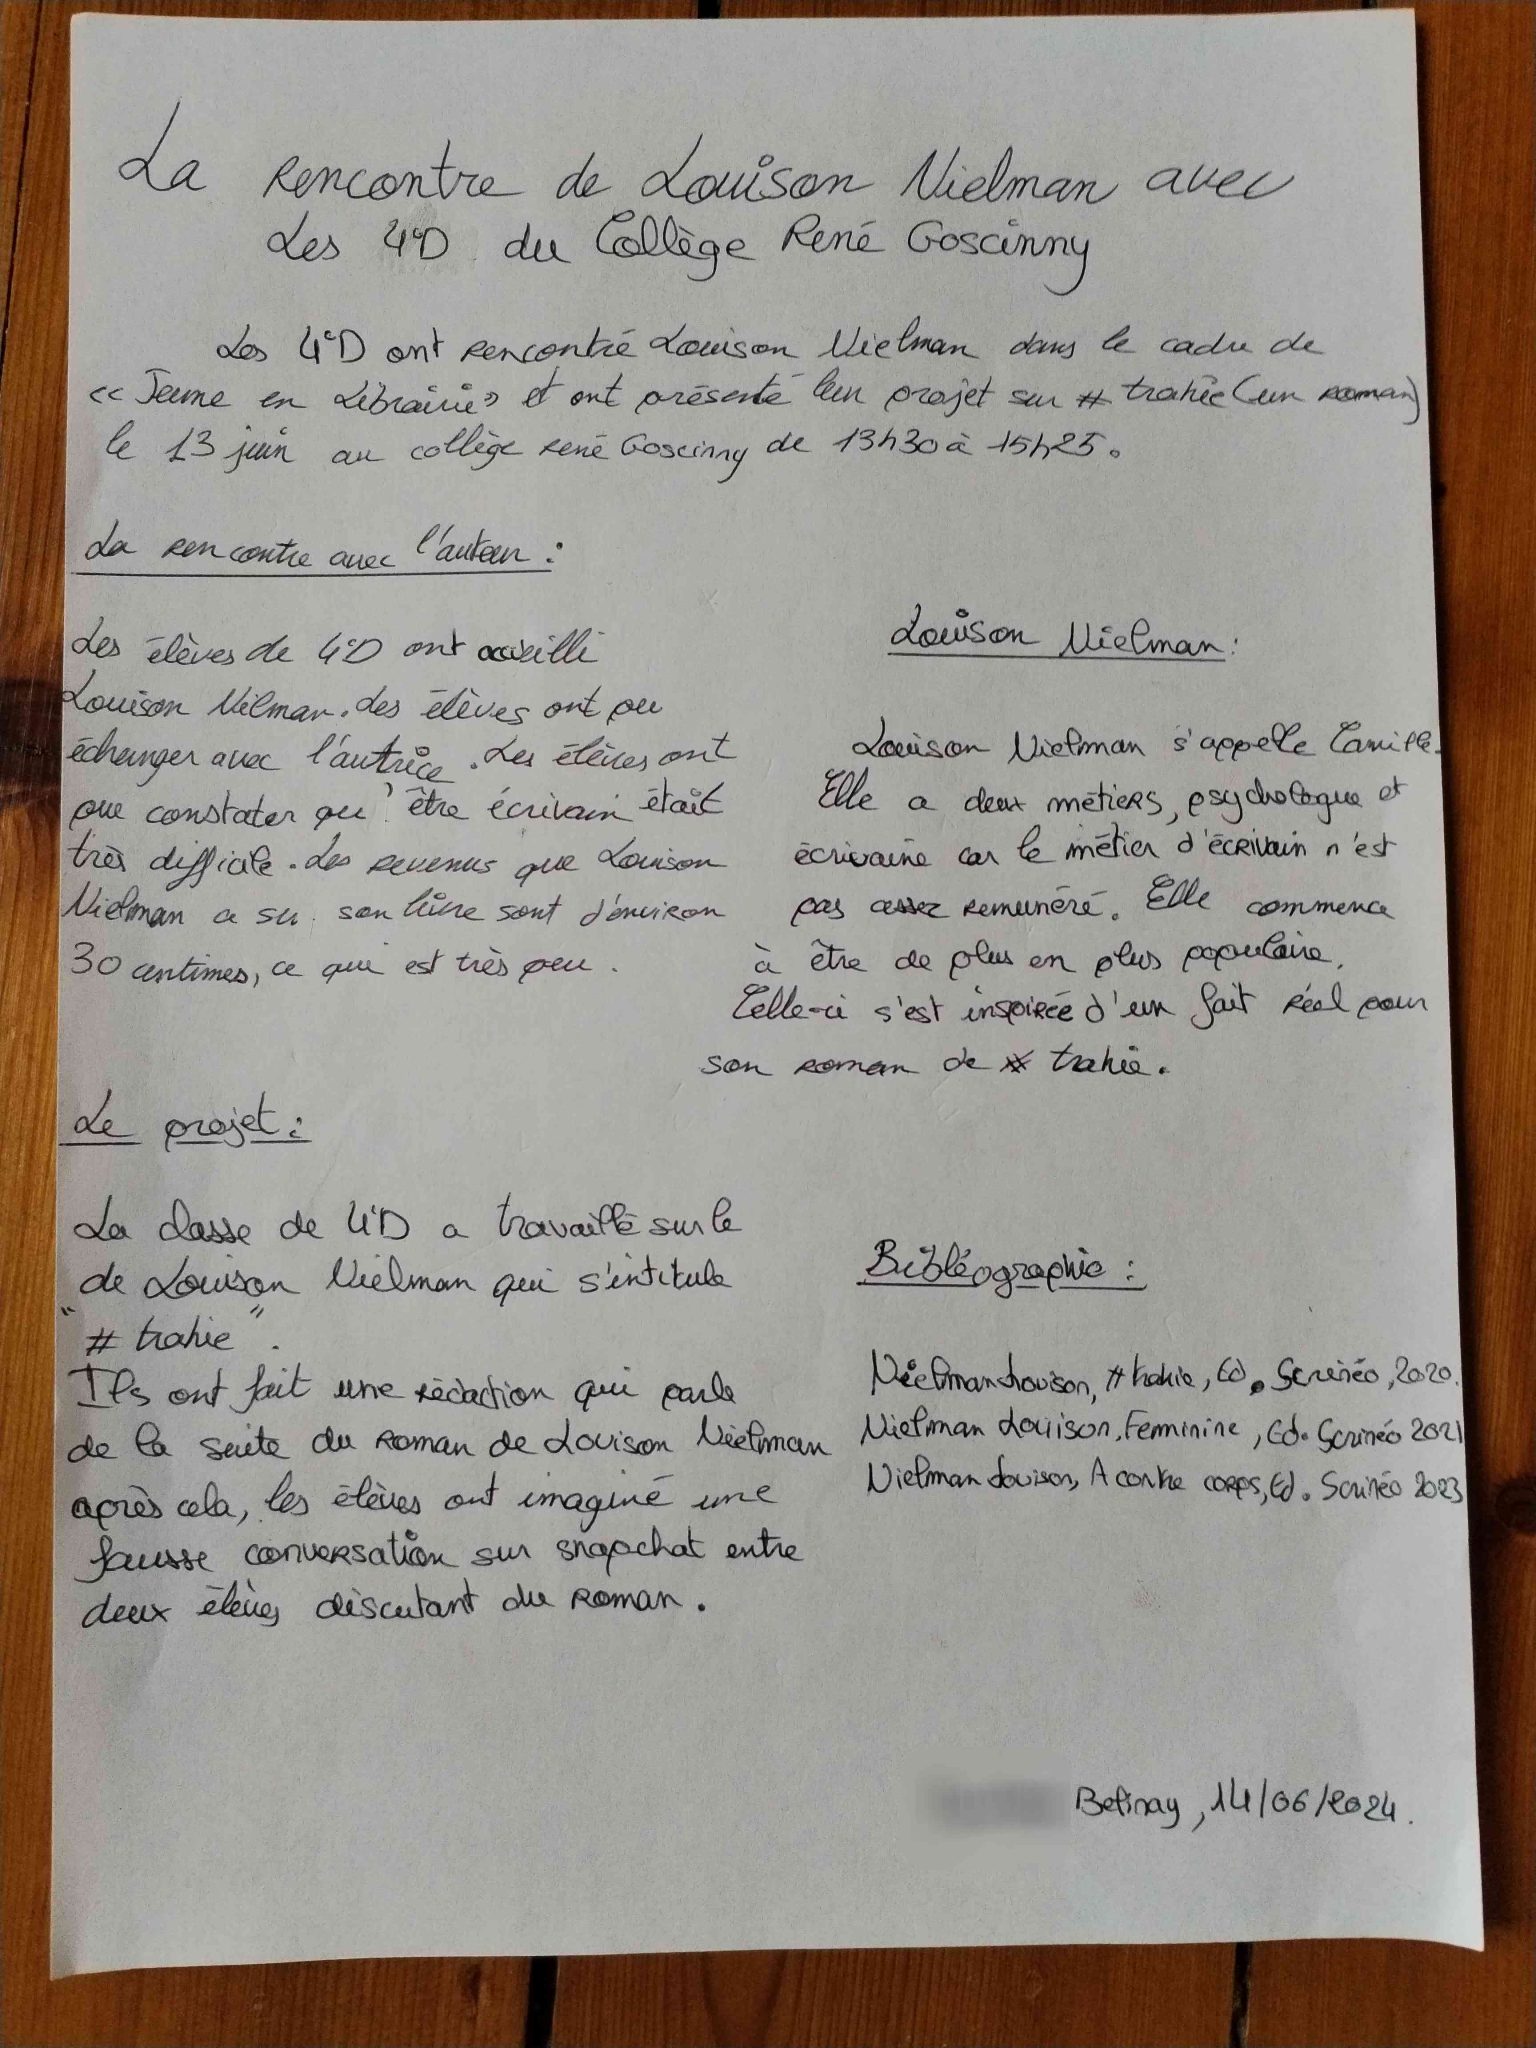 La rencontre de Louison Nielman avec
Les 4°D du Collège René Goscinny
Les 4°D ont rencontré Louison Nielman dans le cadre de
« Jeune en Librairie » et ont présenté leur projet sur # trahie (un roman)
le 13 juin au collège René Goscinny de 13h30 à 15h25.
La rencontre avec l'auteur :
Les élèves de 4°D ont accueilli
Louison Nilman. Les élèves ont pu
échanger avec l'autrice. Les élèves ont
pue constater qu'être écrivain était
très difficile. Les revenus que Louison
Nielman a su son livre sont d'environ
30 centimes, ce qui est très peu.
Louison Nielman :
Louison Nielman s'appelle Camille.
Elle a deux métiers, psychologue et
écrivaine car le métier d'écrivain n'est
pas assez remunéré. Elle commence
à être de plus en plus populaire.
Celle-ci s'est inspirée d'un fait réel pour
son roman de # trahie.
Le projet :
La classe de 4°D a travaillé sur le
de Louison Nielman qui s'intitule
"# trahie".
Ils ont fait une rédaction qui parle
de la suite du roman de Louison Nielman
après cela, les élèves ont imaginé une
fausse conversation sur snapchat entre
deux élèves discutant du roman.
Bibliographie :
Nielman Louison, # trahie, Ed. Scrinéo, 2020.
Nielman Louison, Feminine, Ed. Scrinéo 2021
Nielman Louison, A contre corps, Ed. Scrinéo 2023
, 14/06/2024.